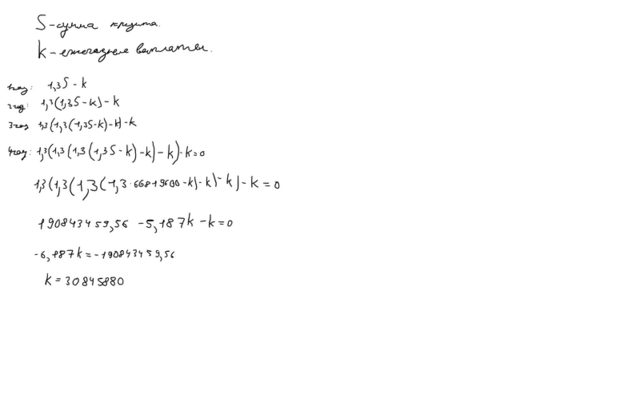 S - сумма кредита.
k - ежегодные выплаты.
1 год: 1,3S - k
2 год: 1,3(1,3S - k) - k
3 год 1,3(1,3(1,3S - k) - k) - k
4 год: 1,3(1,3(1,3(1,3S - k) - k) - k) - k = 0
1,3(1,3(1,3(1,3 · 66819500 - k) - k) - k) - k = 0
190843459,56 - 5,187k - k = 0
-6,187k = -190843459,56
k = 30845880